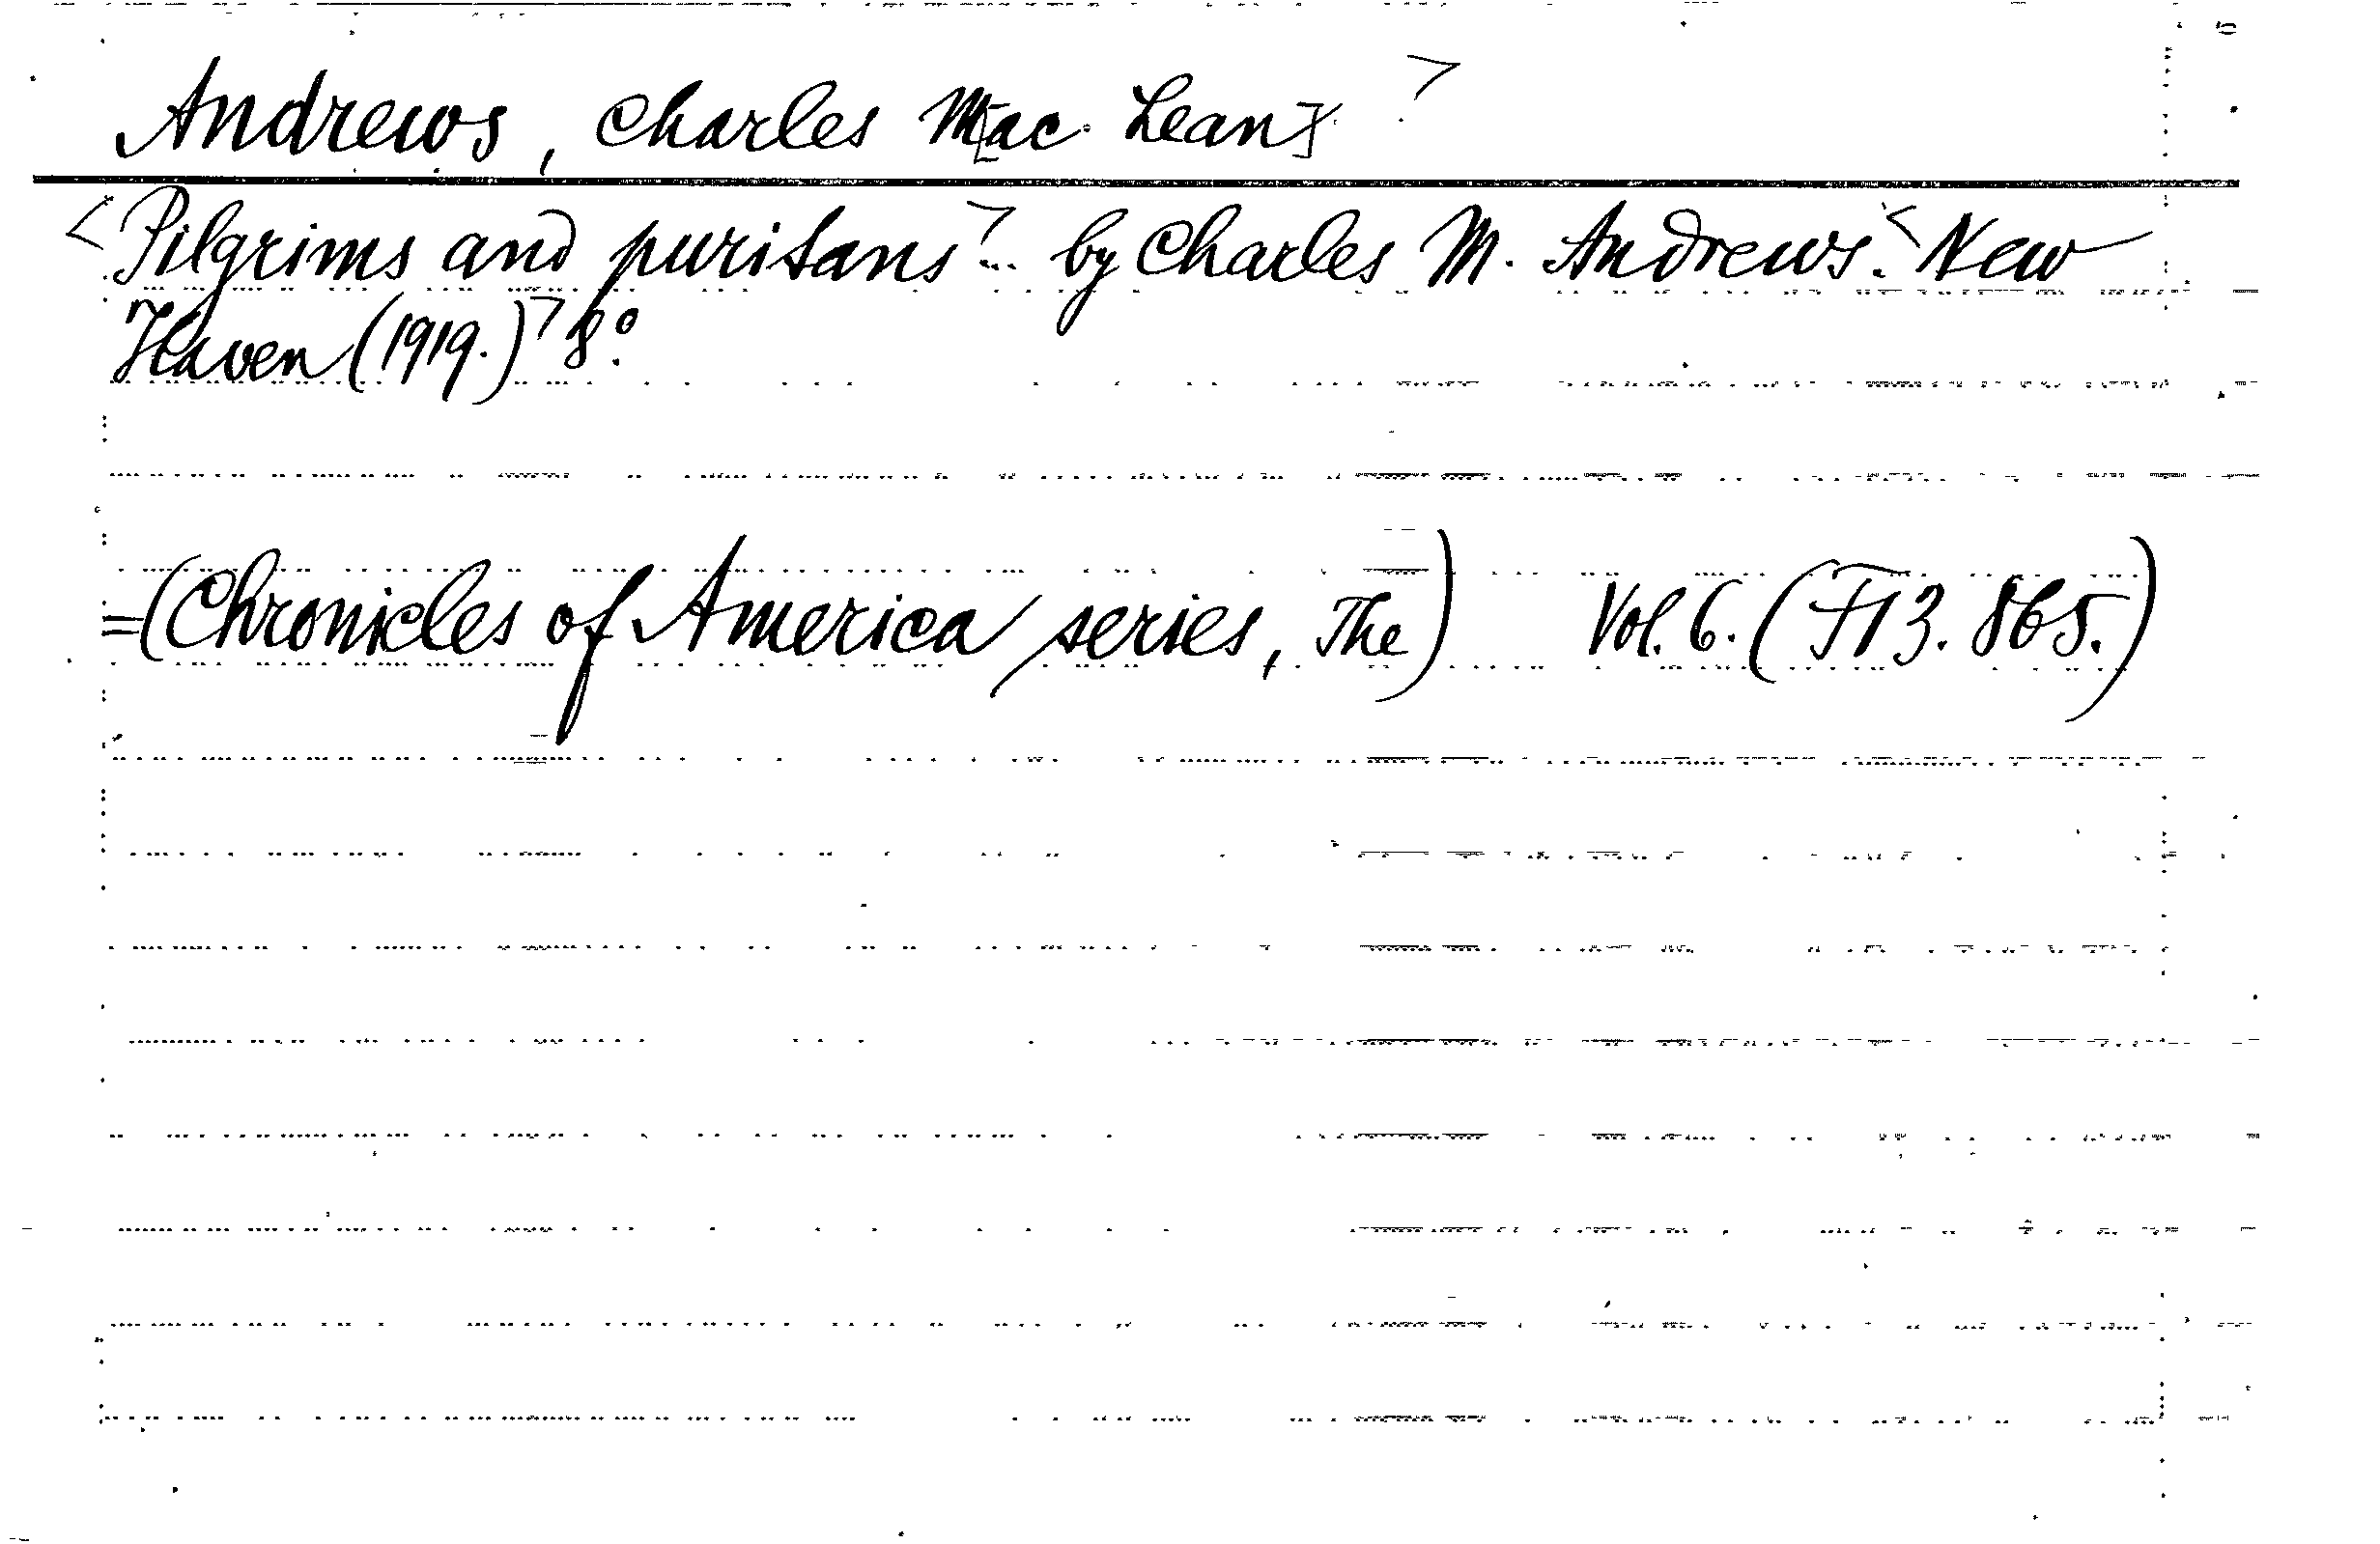 Andrews, Charles M[ac Lean]
<Pilgrims and puritans> ... by Charles M. Andrews. <New
Haven (1919.)> 8°.
=(Chronicles of America series, The) Vol. 6. (F13.865.)